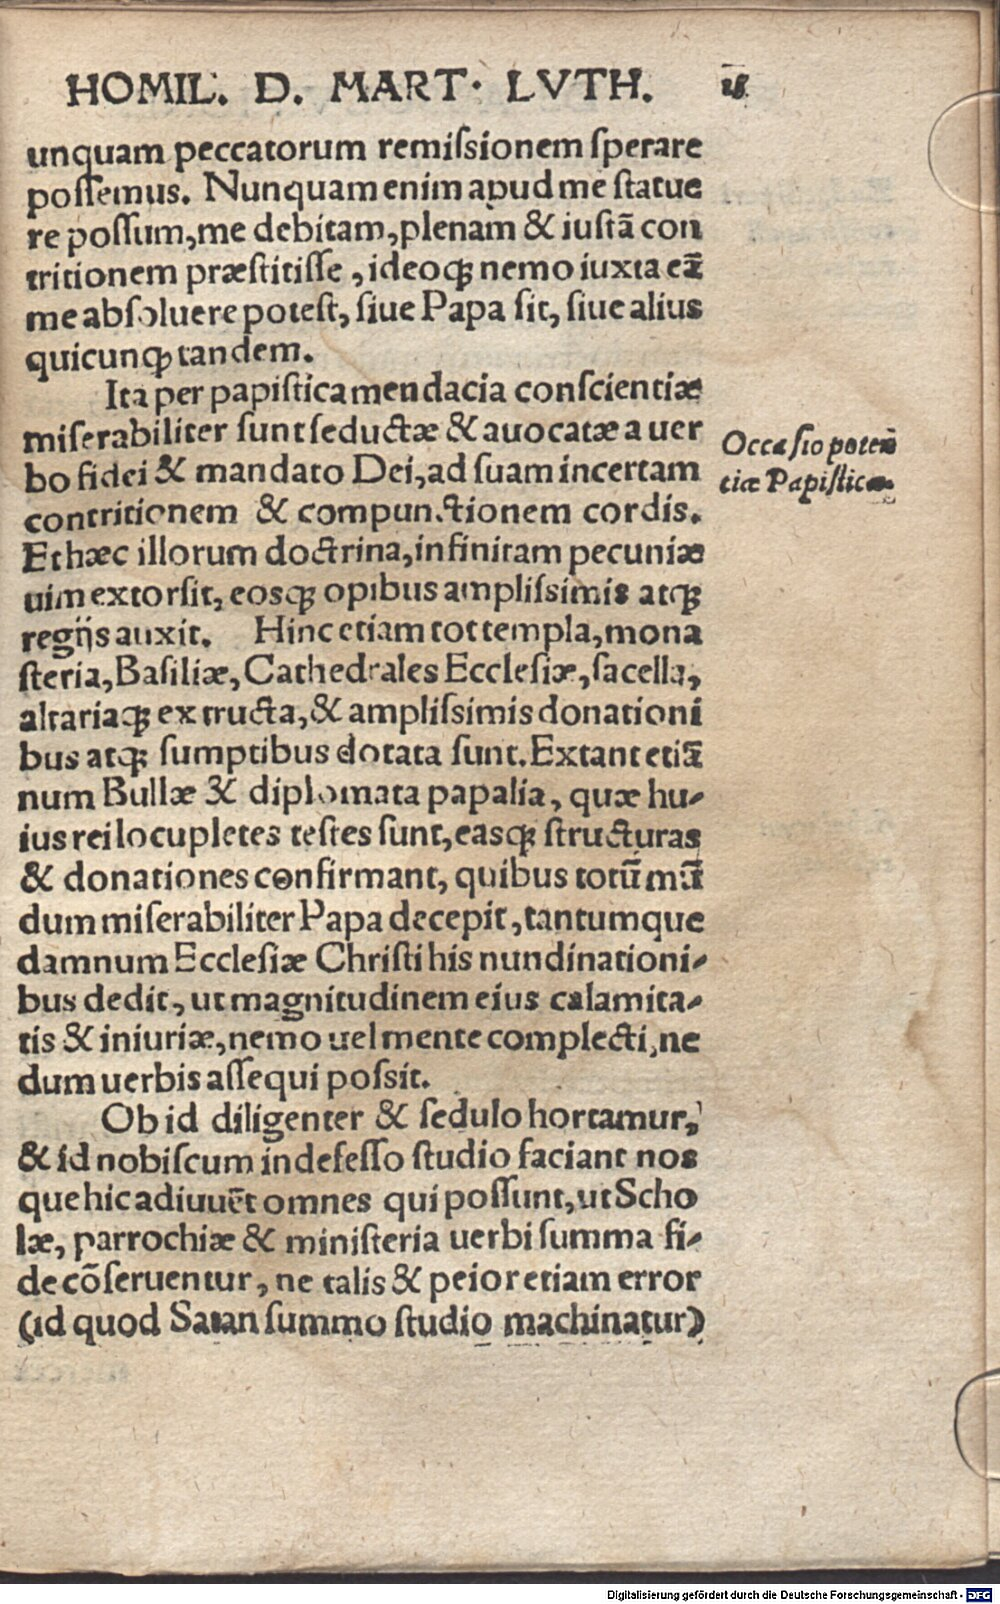 HOMIL. D. MART. LVTH.
unquam peccatorum remiſsionem ſperare
poſſemus. Nunquam enim apud me ſtatue
re poſſum, me debitam, plenam & iuſtā con
tritionem præſtitiſſe, ideoq́ꝫ nemo iuxta eā
me abſoluere poteſt, ſiue Papa ſit, ſiue alius
quicunqꝫ tandem.
Ita per papiſtica mendacia conſcientiæ
miſerabiliter ſunt ſeductæ & auocatæ a uer
bo fidei & mandato Dei, ad ſuam incertam
contritionem & compunctionem cordis.
Et hæc illorum doctrina, infinitam pecuniæ
uim extorſit, eosqꝫ opibus ampliſsimis atqꝫ
regijs auxit. Hinc etiam tot templa, mona
ſteria, Baſiliæ, Cathedrales Eccleſiæ, ſacella,
altariaqꝫ extructa, & ampliſsimis donationi
bus atqꝫ ſumptibus dotata ſunt. Extant etiā
num Bullæ & diplomata papalia, quæ hu-
ius rei locupletes teſtes ſunt, easqꝫ ſtructuras
& donationes confirmant, quibus totū mū
dum miſerabiliter Papa decepit, tantumque
damnum Eccleſiæ Chriſti his nundinationi-
bus dedit, ut magnitudinem eius calamita-
tis & iniuriæ, nemo uel mente complecti, ne
dum uerbis aſſequi poſsit.
Ob id diligenter & ſedulo hortamur,
& id nobiſcum indefeſſo ſtudio faciant nos
que hic adiuuēt omnes qui poſſunt, ut Scho
læ, parrochiæ & miniſteria uerbi ſumma fi-
de cōſeruentur, ne talis & peior etiam error
(id quod Satan ſummo ſtudio machinatur)
Occaſio poten
tiæ Papiſticæ.
Digitalisierung gefördert durch die Deutsche Forschungsgemeinschaft - DFG